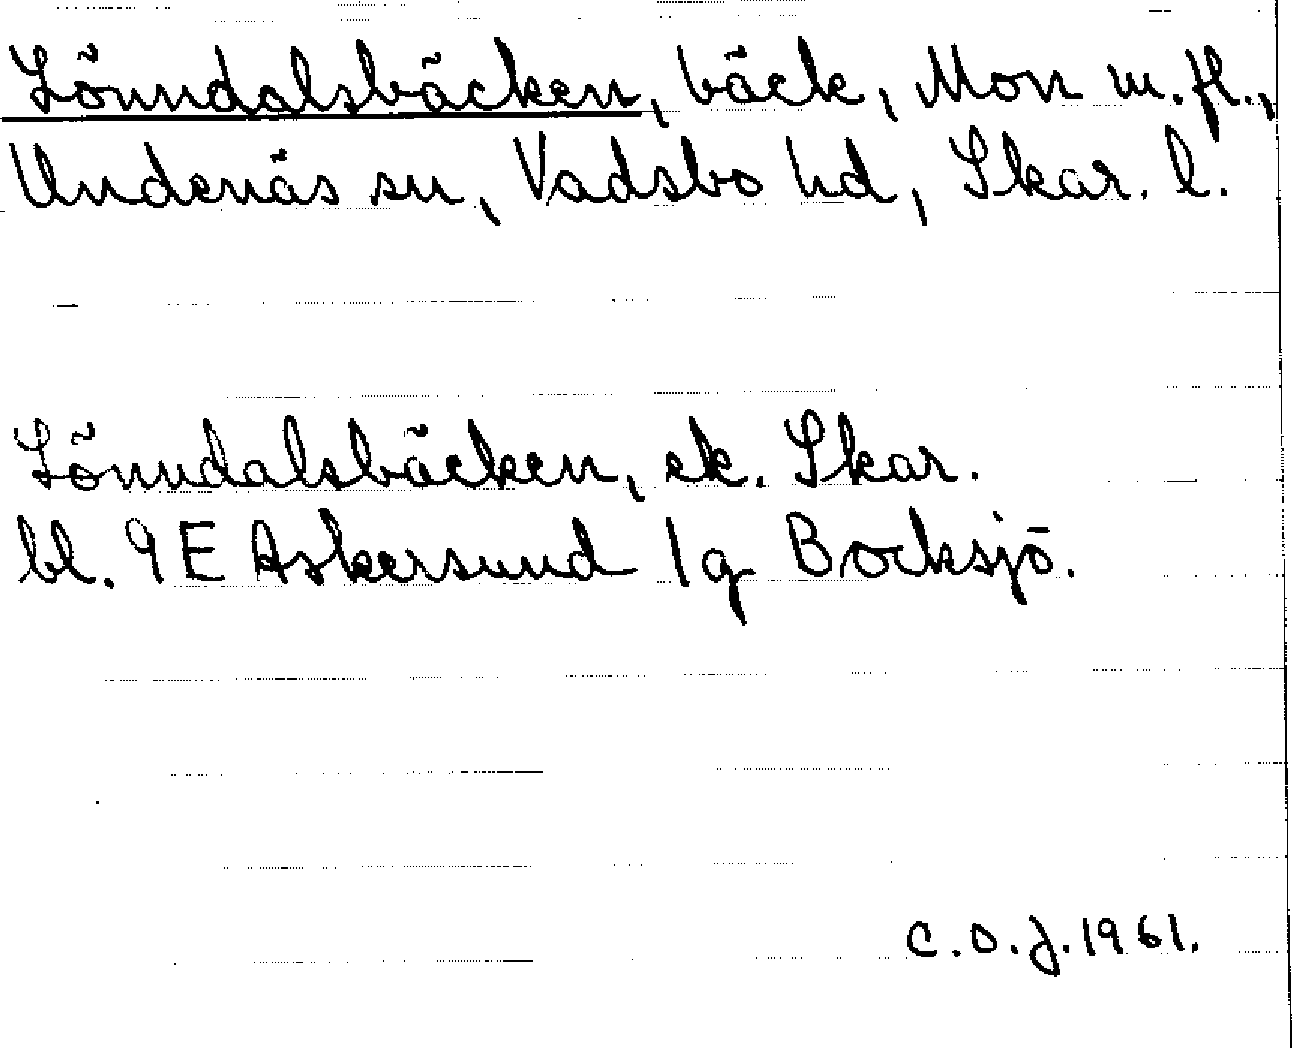 Lönndalsbäcken, bäck, Mon m.fl.,
Undenäs sn, Vadsbo hd, Skar. l.
Lönndalsbäcken, ek. Skar.
bl. 9E Askersund 1g Bocksjö.
C.O.J. 1961.